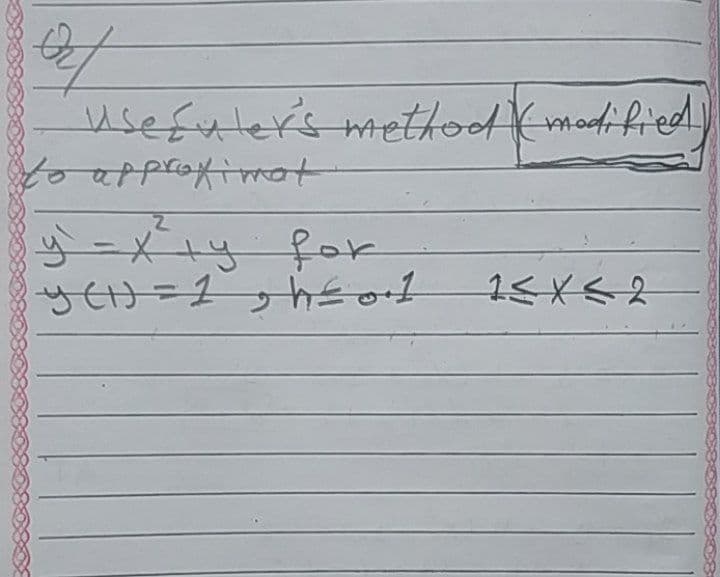 Q/
Use Euler's method (modified)
to approximat
y' = x² + y for
y(1) = 1 , h = 0.1 1 ≤ x ≤ 2